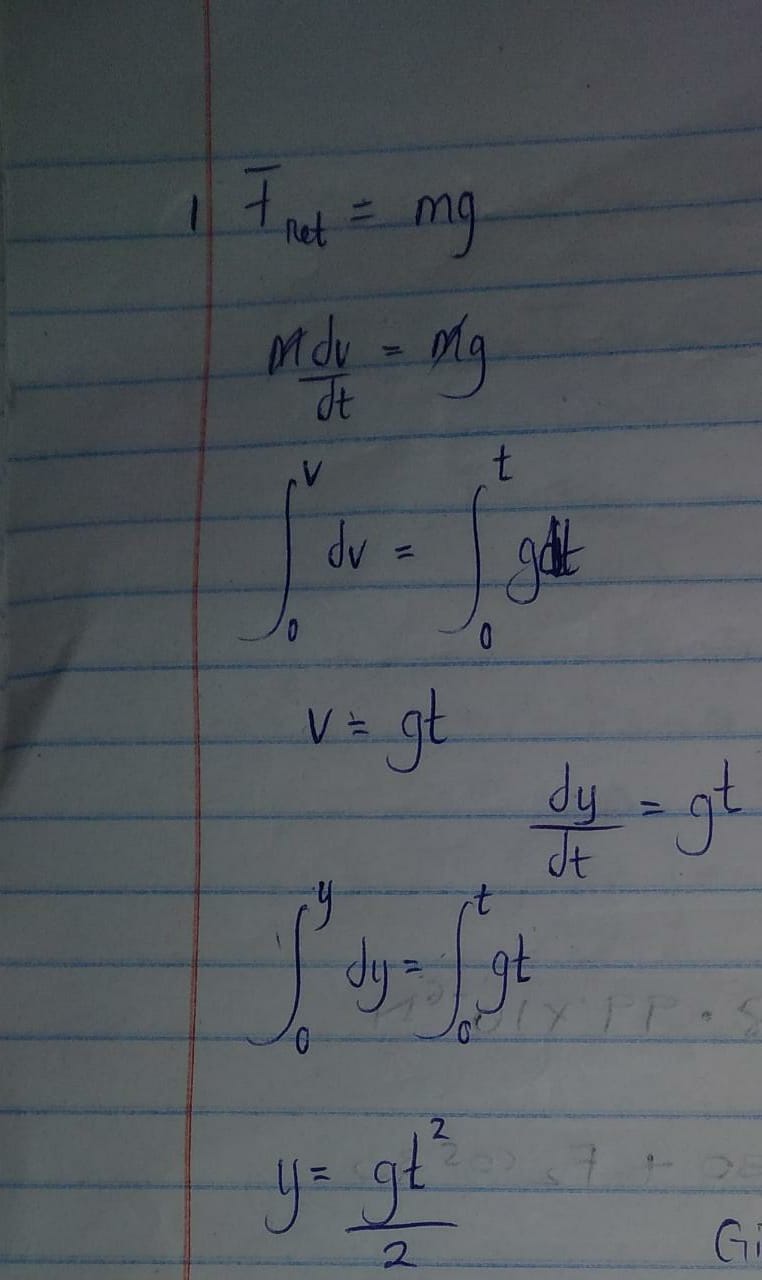 1 F̅ net = mg
m dv/dt = mg
∫₀ᵛ dv = ∫₀ᵗ gdt
v = gt
dy/dt = gt
∫₀ʸ dy = ∫₀ᵗ gt
y = gt²/2
Gi